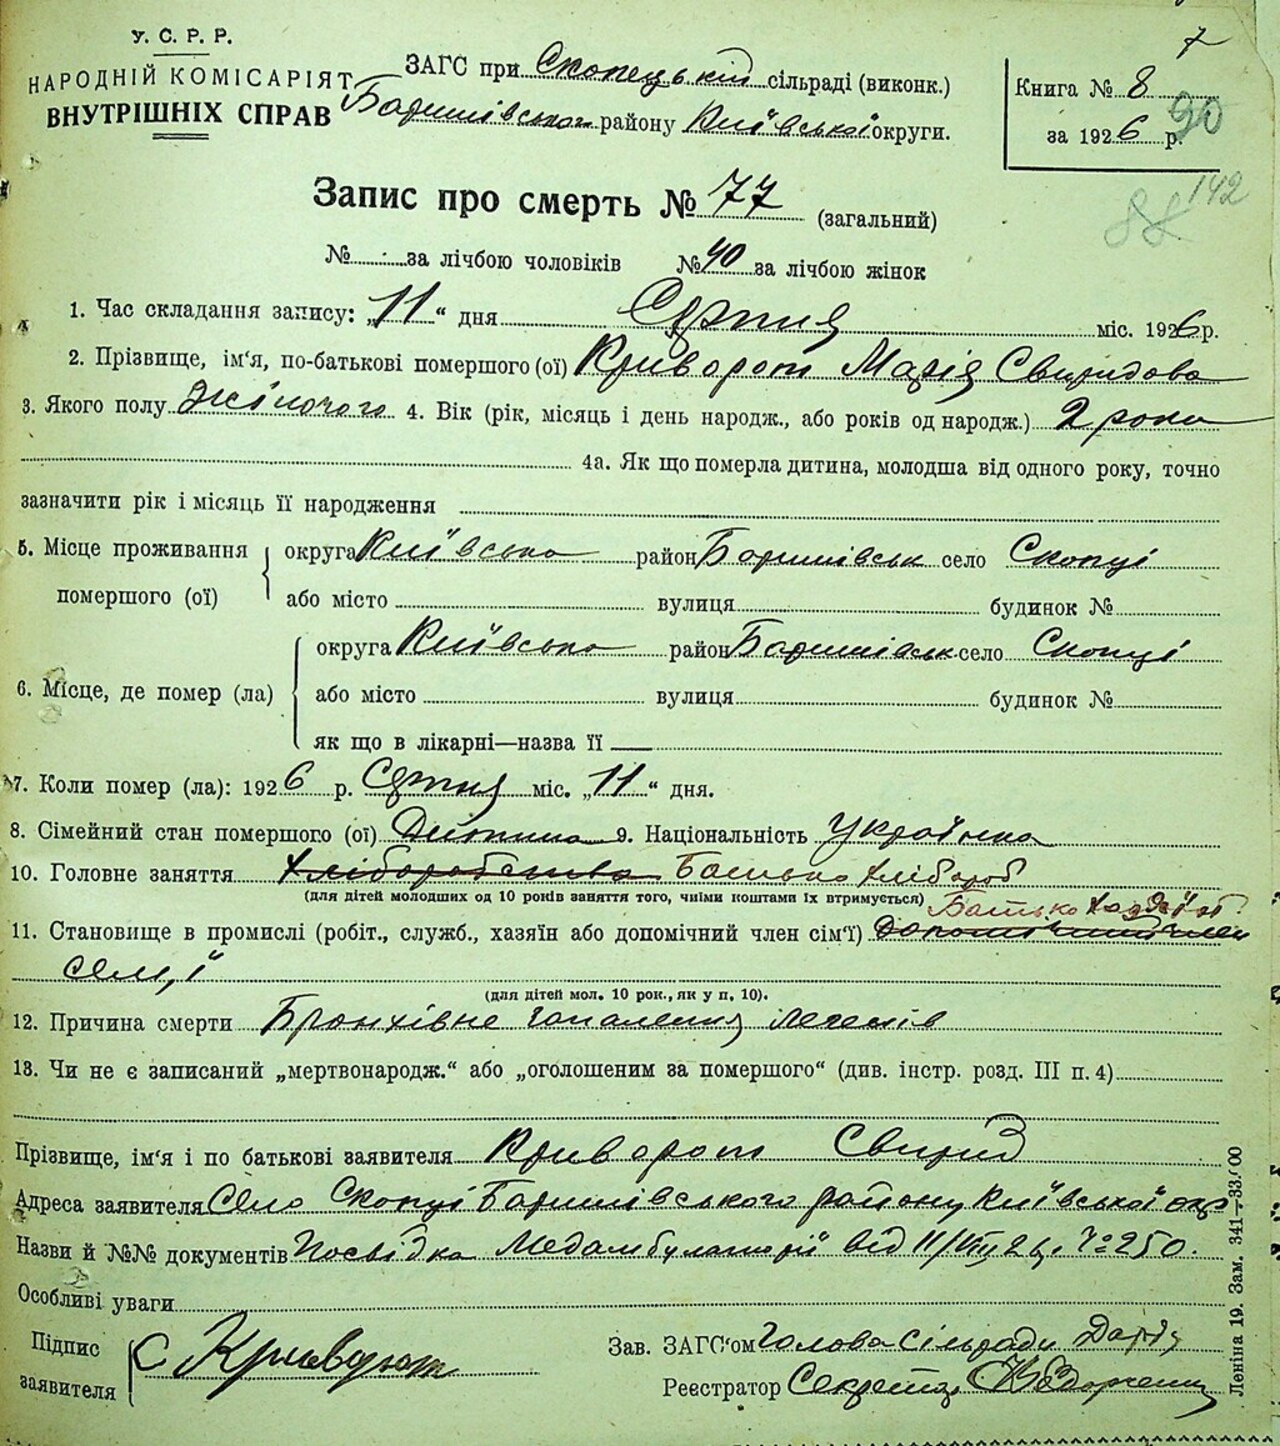 У. С. Р. Р.
НАРОДНІЙ КОМІСАРІЯТ
ВНУТРІШНІХ СПРАВ
ЗАГС при Скопецькій сільраді (виконк.)
Баришівського району Київської округи.
7
Книга № 8
за 1926 р.
90
142
88
Запис про смерть № 77 (загальний)
№ за лічбою чоловіків № 40 за лічбою жінок
1. Час складання запису: „11“ дня Серпня міс. 1926 р.
2. Прізвище, ім'я, по-батькові помершого (ої) Криворот Марія Свиридова
3. Якого полу жіночого 4. Вік (рік, місяць і день народж., або років од народж.) 2 роки
4а. Як що померла дитина, молодша від одного року, точно
зазначити рік і місяць її народження
5. Місце проживання помершого (ої) округа Київська район Баришівськ село Скопці
або місто вулиця будинок №
6. Місце, де помер (ла) округа Київська район Баришівськ село Скопці
або місто вулиця будинок №
як що в лікарні—назва її
7. Коли помер (ла): 1926 р. Серпня міс. „11“ дня.
8. Сімейний стан помершого (ої) Дитина 9. Національність Українка
10. Головне заняття хліборобства Батько хлібороб
(для дітей молодших од 10 років заняття того, чиїми коштами їх втримується)
Батько хазяїн
11. Становище в промислі (робіт., служб., хазяїн або допомічний член сім'ї) допомічний член
сем,ї
(для дітей мол. 10 рок., як у п. 10).
12. Причина смерти Бронхівне запалення легенів
13. Чи не є записаний „мертвонародж.“ або „оголошеним за помершого“ (див. інстр. розд. III п. 4)
Прізвище, ім'я і по батькові заявителя Криворот Свирид
Адреса заявителя Село Скопці Баришівського району Київської окр
Назви й №№ документів Посвідка Медамбулаторії від 11/VIII 26. № 250.
Особливі уваги
Підпис заявителя С Криворот
Зав. ЗАГС'ом Голова сільради
Реєстратор Секретар
Леніна 19. Зам. 341—33.000